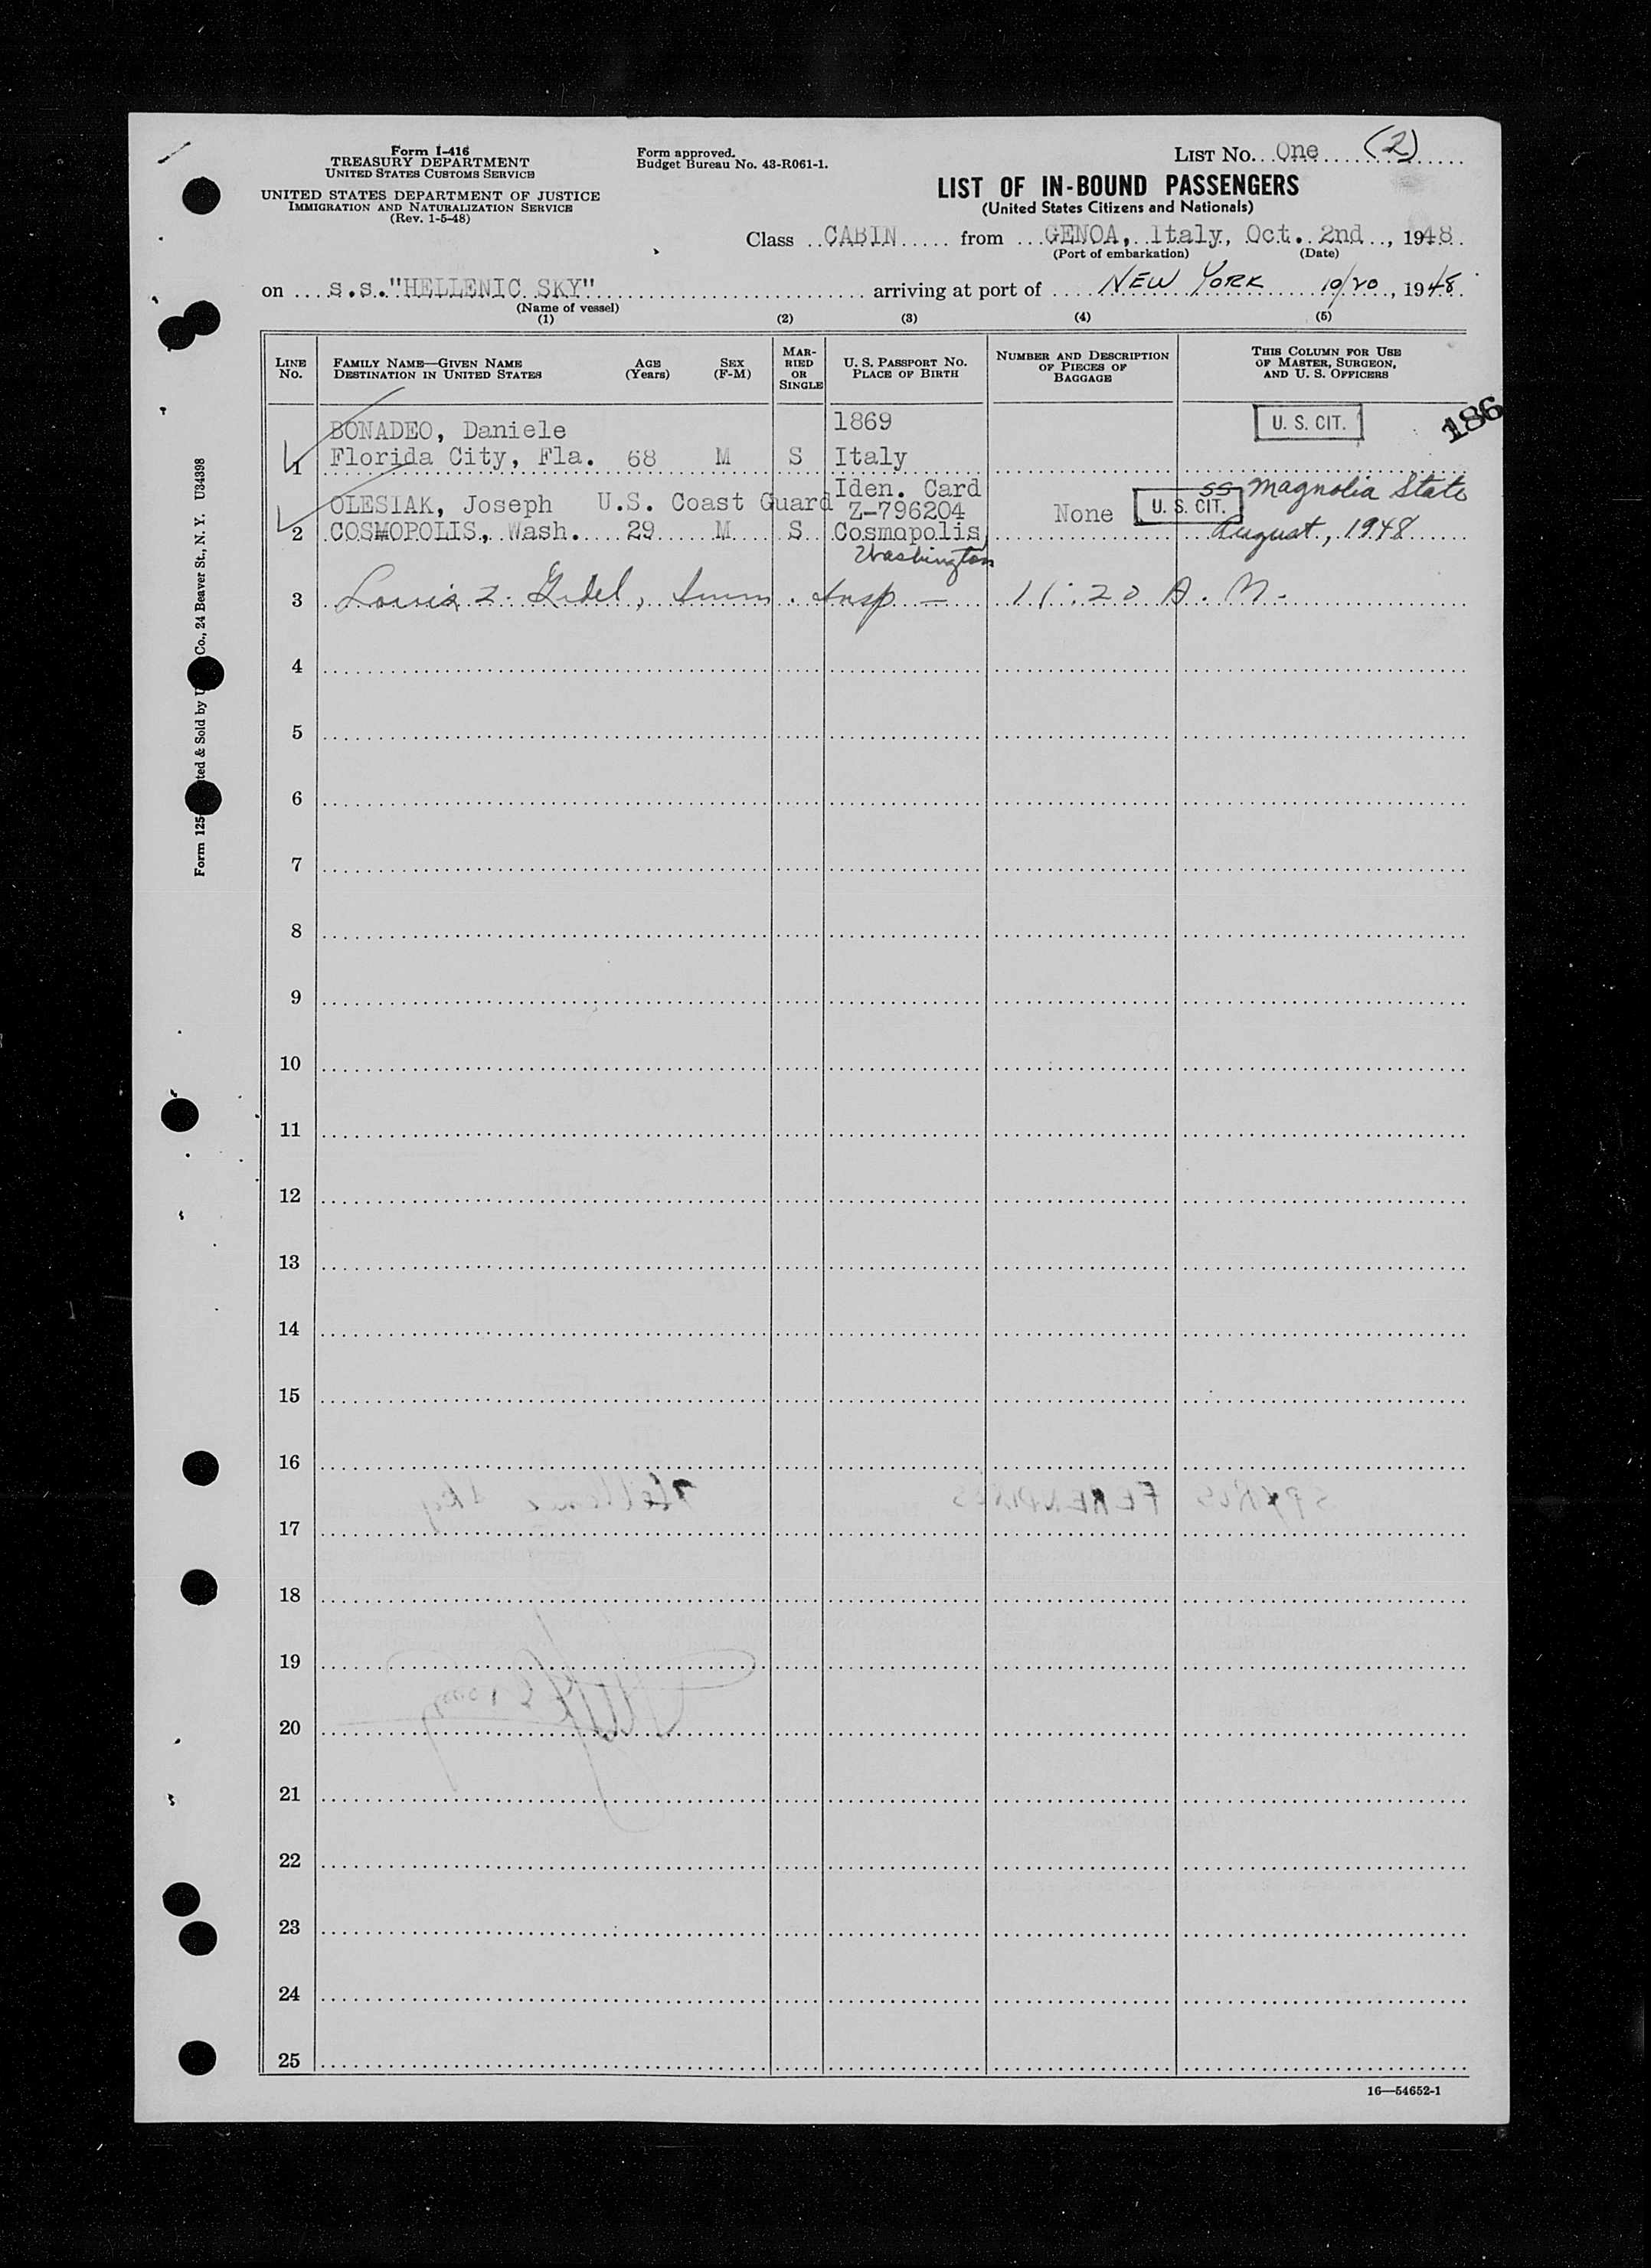 Form I-416
TREASURY DEPARTMENT
UNITED STATES CUSTOMS SERVICE
UNITED STATES DEPARTMENT OF JUSTICE
IMMIGRATION AND NATURALIZATION SERVICE
(Rev. 1-5-48)
Form approved.
Budget Bureau No. 43-R061-1.
LIST No. One (2)
LIST OF IN-BOUND PASSENGERS
(United States Citizens and Nationals)
Class CABIN from GENOA, Italy, Oct. 2nd, 1948
(Port of embarkation) (Date)
on s.s."HELLENIC SKY" arriving at port of NEW YORK 10/20, 1948
(Name of vessel)
(1) (2) (3) (4) (5)
LINE No.
FAMILY NAME—GIVEN NAME
DESTINATION IN UNITED STATES
AGE (Years)
SEX (F-M)
MARRIED OR SINGLE
U. S. PASSPORT No.
PLACE OF BIRTH
NUMBER AND DESCRIPTION OF PIECES OF BAGGAGE
THIS COLUMN FOR USE OF MASTER, SURGEON, AND U. S. OFFICERS
BONADEO, Daniele 1869 U. S. CIT. 186
1 Florida City, Fla. 68 M S Italy
OLESIAK, Joseph U.S. Coast Guard Iden. Card Z-796204 None U. S. CIT. SS Magnolia State
2 COSMOPOLIS, Wash. 29 M S Cosmopolis, Washington August, 1948
3 Louis Z. Gidel, Imm. Insp — 11:20 A. M.
4
5
6
7
8
9
10
11
12
13
14
15
16
17
18
19
20
21
22
23
24
25
16—54652-1
Form 125 ted & Sold by U Co., 24 Beaver St., N. Y. U34398